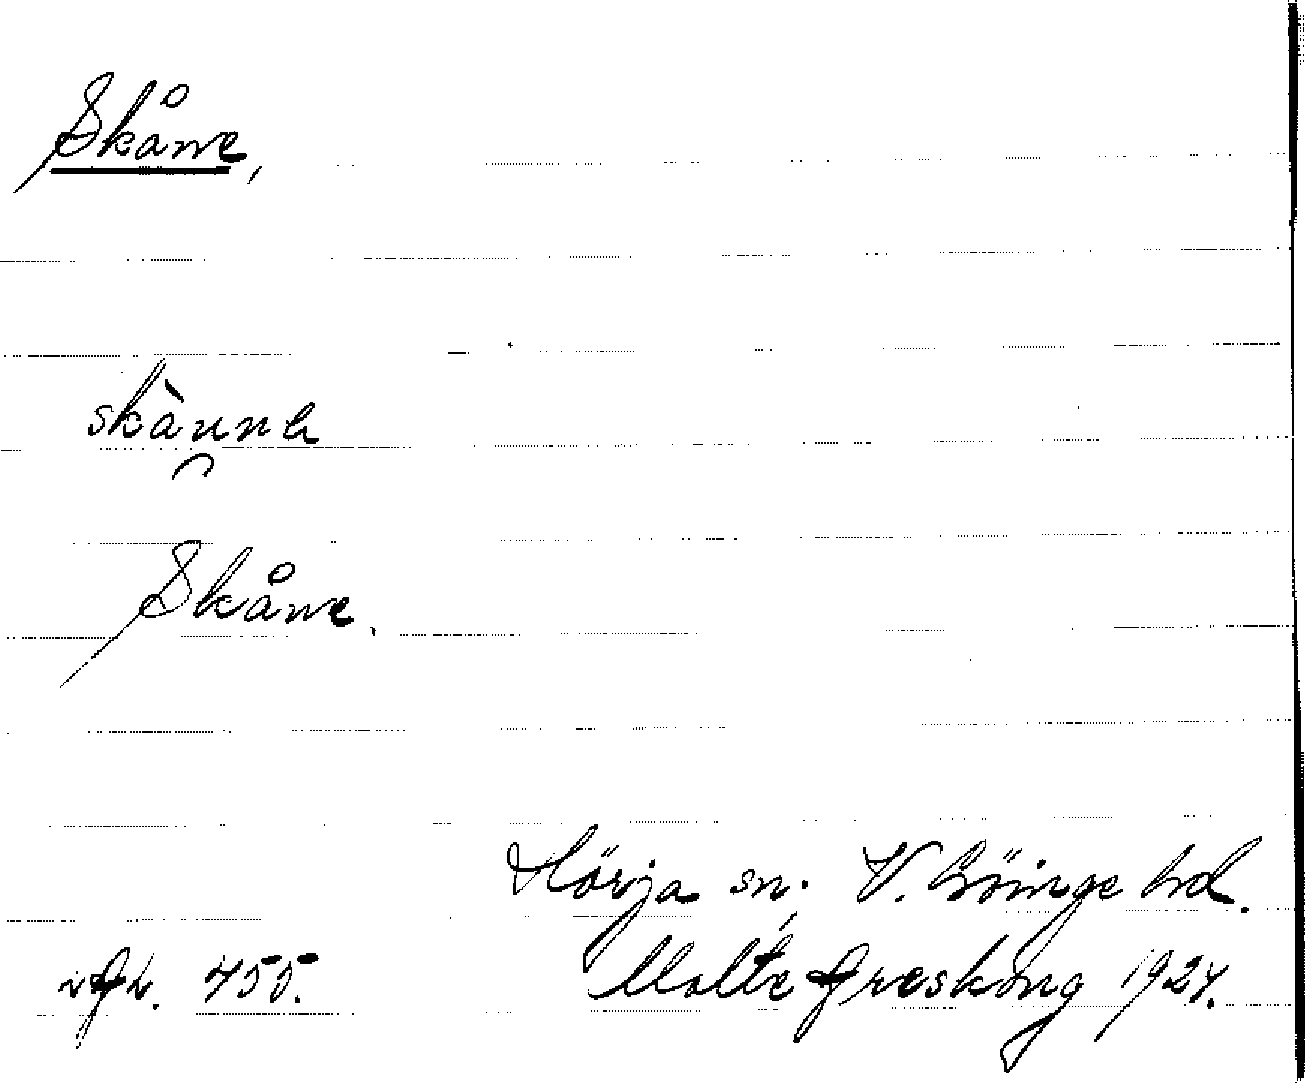 Skåne,
skàunɑ
Skåne.
Hörja sn; V. Göinge hd.
455.
Malte Areskog 1924.